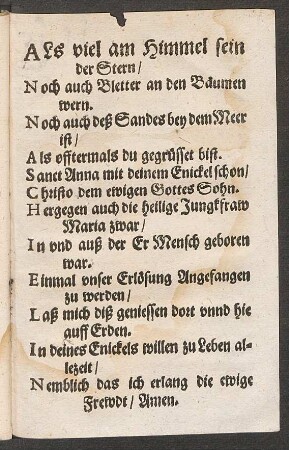 ALs viel am Himmel sein
der Stern/
Noch auch Bletter an den Bäumen
wern.
Noch auch deß Sandes bey dem Meer
ist/
Als offtermals du gegrüsset bist.
Sanct Anna mit deinem Enickel schon/
Christo dem ewigen Gottes Sohn.
Hergegen auch die heilige Jungkfraw
Maria zwar/
In vnd auß der Er Mensch geboren
war.
Einmal vnser Erlösung Angefangen
zu werden/
Laß mich diß geniessen dort vnnd hie
auff Erden.
In deines Enickels willen zu Leben al-
lezeit/
Nemblich das ich erlang die ewige
Frewdt/ Amen.